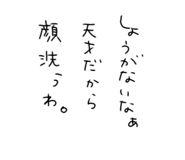 しょうがないなぁ
天才だから
顔洗うわ。